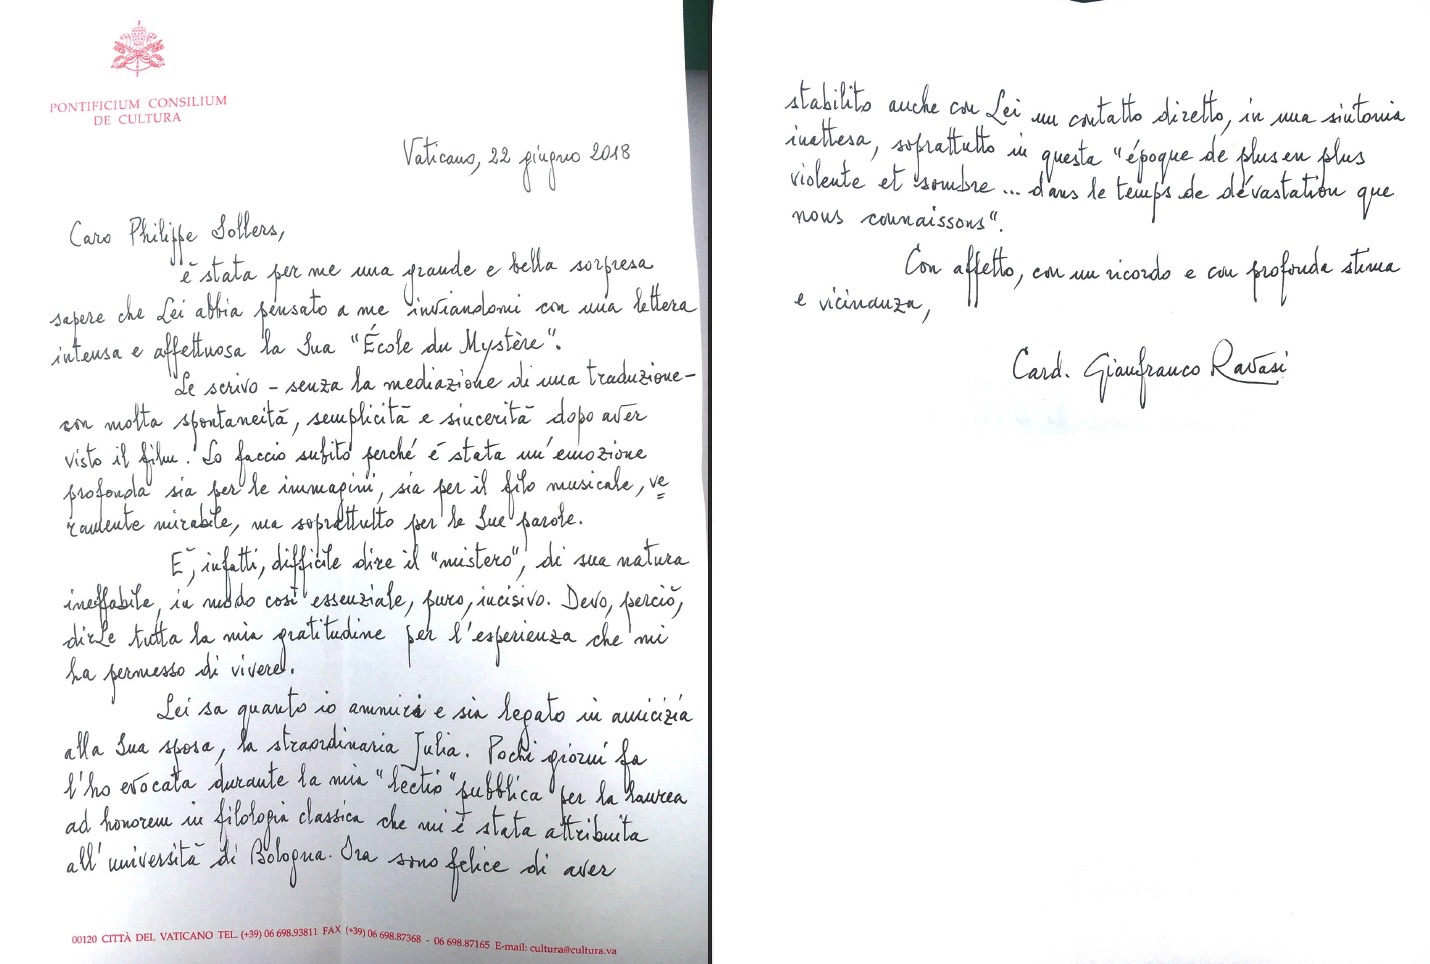 PONTIFICIUM CONSILIUM
DE CULTURA
Vaticano, 22 giugno 2018
Caro Philippe Sollers,
è stata per me una grande e bella sorpresa
sapere che Lei abbia pensato a me inviandomi con una lettera
intensa e affettuosa la Sua "École du Mystère".
Le scrivo - senza la mediazione di una traduzione -
con molta spontaneità, semplicità e sincerità dopo aver
visto il film. Lo faccio subito perché è stata un'emozione
profonda sia per le immagini, sia per il filo musicale, ve
ramente mirabile, ma soprattutto per le Sue parole.
È, infatti, difficile dire il "mistero", di sua natura
ineffabile, in modo così essenziale, puro, incisivo. Devo, perciò,
dirLe tutta la mia gratitudine per l'esperienza che mi
ha permesso di vivere.
Lei sa quanto io ammiri e sia legato in amicizia
alla Sua sposa, la straordinaria Julia. Pochi giorni fa
l'ho evocata durante la mia "lectio" pubblica per la laurea
ad honorem in filologia classica che mi è stata attribuita
all'università di Bologna. Ora sono felice di aver
00120 CITTÀ DEL VATICANO TEL. (+39) 06 698.93811 FAX (+39) 06 698.87368 - 06 698.87165 E-mail: cultura@cultura.va
stabilito anche con Lei un contatto diretto, in una sintonia
inattesa, soprattutto in questa "époque de plus en plus
violente et sombre... dans le temps de dévastation que
nous connaissons".
Con affetto, con un ricordo e con profonda stima
e vicinanza,
Card. Gianfranco Ravasi